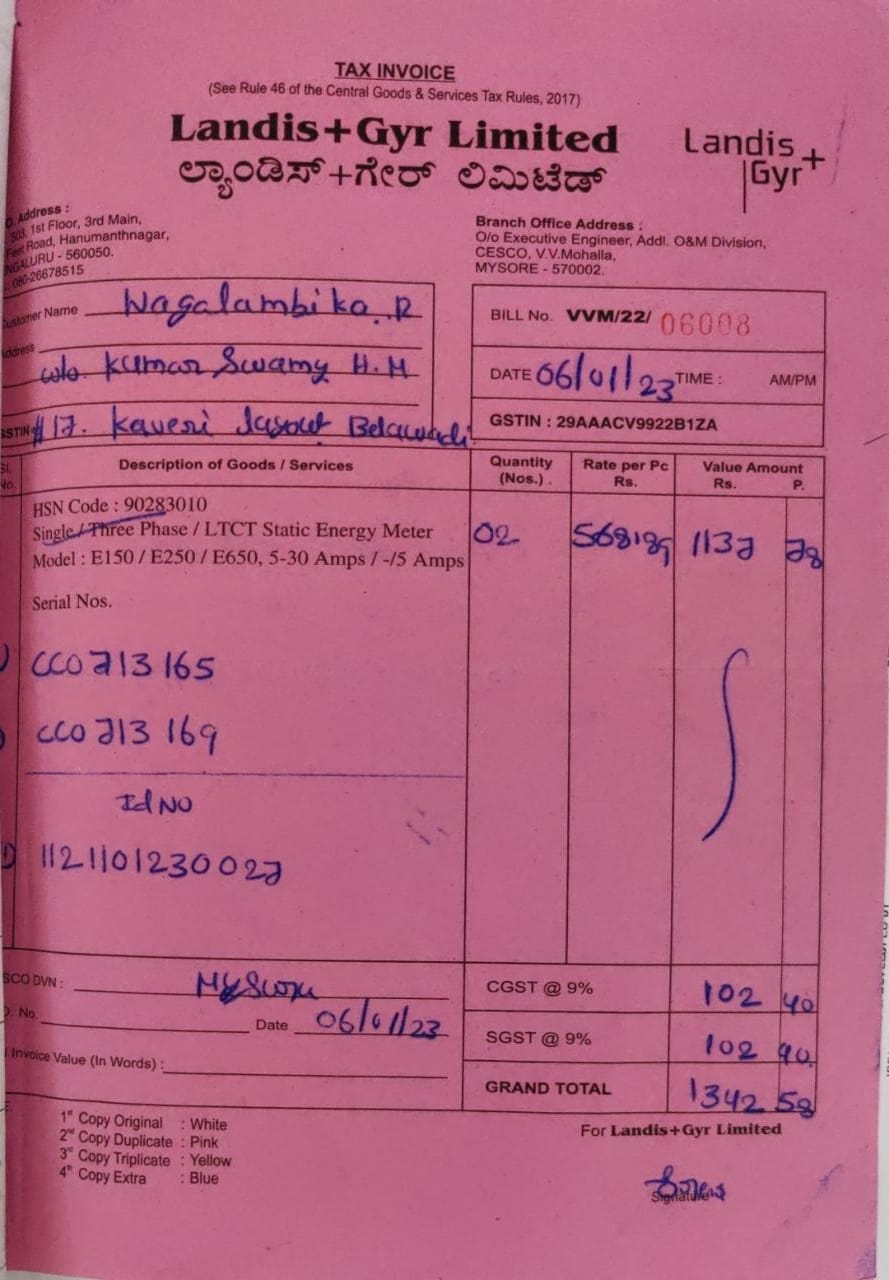 TAX INVOICE
(See Rule 46 of the Central Goods & Services Tax Rules, 2017)
Landis+Gyr Limited
ಲ್ಯಾಂಡಿಸ್+ಗೇರ್ ಲಿಮಿಟೆಡ್
Landis
Gyr+
Address :
503, 1st Floor, 3rd Main,
Feet Road, Hanumanthnagar,
NGALURU - 560050.
080-26678515
Branch Office Address :
O/o Executive Engineer, Addl. O&M Division,
CESCO, V.V.Mohalla,
MYSORE - 570002.
Customer Name Nagalambika. R
Address
w/o. Kumar Swamy H.M
GSTIN #17. Kaveri Layout Belawadi
BILL No. VVM/22/ 06008
DATE 06/01/23 TIME : AM/PM
GSTIN : 29AAACV9922B1ZA
Sl. No. Description of Goods / Services Quantity (Nos.) . Rate per Pc Rs. Value Amount Rs. P.
HSN Code : 90283010
Single / Three Phase / LTCT Static Energy Meter 02 568.89 1137 78
Model : E150 / E250 / E650, 5-30 Amps / -/5 Amps
Serial Nos.
CC0713165
CC0713169
Id NO
1) 1121101230027
SCO DVN : Mysore
No. Date 06/01/23
Invoice Value (In Words) :
CGST @ 9% 102 40
SGST @ 9% 102 40
GRAND TOTAL 1342 58
1st Copy Original : White
2nd Copy Duplicate : Pink
3rd Copy Triplicate : Yellow
4th Copy Extra : Blue
For Landis+Gyr Limited
Signature